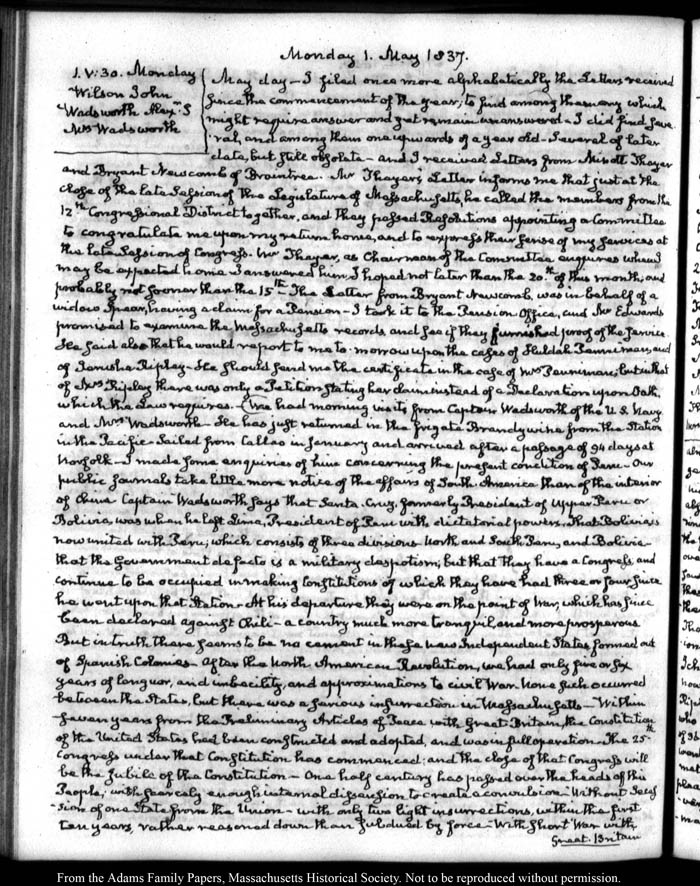 Monday 1. May 1837.
1. V:30. Monday
Wilson John
Wadsworth Alexr. S
Mrs Wadsworth
May day – I filed once more alphabetically the Letters received
since the commencement of the year, to find among them any which
might require answer and yet remain unanswered – I did find seve
ral, and among them one upwards of a year old – Several of later
date, but still obsolete – and I received Letters from Minott Thayer
and Bryant Newcomb of Braintree. Mr Thayer's Letter informs me that just at the
close of the late Session of the Legislature of Massachusetts, he called the members from the
12th Congressional District together, and they passed Resolutions appointing a Committee
to congratulate me upon my return home, and to express their sense of my services at
the late Session of Congress. Mr Thayer, as Chairman of the Committee enquires when I
may be expected home I answered him I hoped not later than the 20th of this month, and
probably not sooner than the 15th. The Letter from Bryant Newcomb, was in behalf of a
widow Spear, having a claim for a Pension – I took it to the Pension Office, and Mr Edwards
promised to examine the Massachusetts records and see if they furnished proof of the service.
He said also that he would report to me to-morrow upon the cases of Huldah Penniman, and
of Ripley – He should send me the certificate in the case of Mrs Penniman; but in that
of Mrs Ripley there was only a Petition stating her claim instead of a Declaration upon Oath,
which the Law requires – We had morning visits from Captain Wadsworth of the U.S. Navy
and Mrs Wadsworth – He has just returned in the frigate Brandywine from the Station
in the Pacific – Sailed from Callao in January and arrived after a passage of 94 days at
Norfolk – I made some enquiries of him concerning the present condition of Peru – Our
public journals take little more notice of the affairs of South America than of the interior
of China Captain Wadsworth says that Santa Cruz, formerly President of Upper Peru or
Bolivia, was when he left Lima, President of Peru with dictatorial powers. That Bolivia is
now united with Peru, which consists of three divisions North and South Peru, and Bolivia –
that the Government de facto is a military despotism; but that they have a Congress, and
continue to be occupied in making Constitutions of which they have had three or four since
he went upon that Station – At his departure they were on the point of War, which has since
been declared against Chili – a country much more tranquil, and more prosperous
But in truth there seems to be no cement in these new Independent States, formed out
of Spanish Colonies – After the North American Revolution, we had only five or six
years of languor, and imbecility, and approximations to civil War None such occurred
between the States, but there was a serious insurrection in Massachusetts – Within
seven years from the Preliminary Articles of Peace with Great Britain, the Constitution
of the United States had been constructed and adopted, and was in full operation. The 25th
Congress under that Constitution has commenced; and the close of that Congress will
be the Jubilee of the Constitution – One half century has passed over the heads of this
People, with scarcely enough internal dissension to create a convulsion – Without Seces
-sion of one State from the Union – with only two light insurrections, within the first
ten years, rather reasoned down than subdued by force – With short War with
Great-Britain
From the Adams Family Papers, Massachusetts Historical Society. Not to be reproduced without permission.